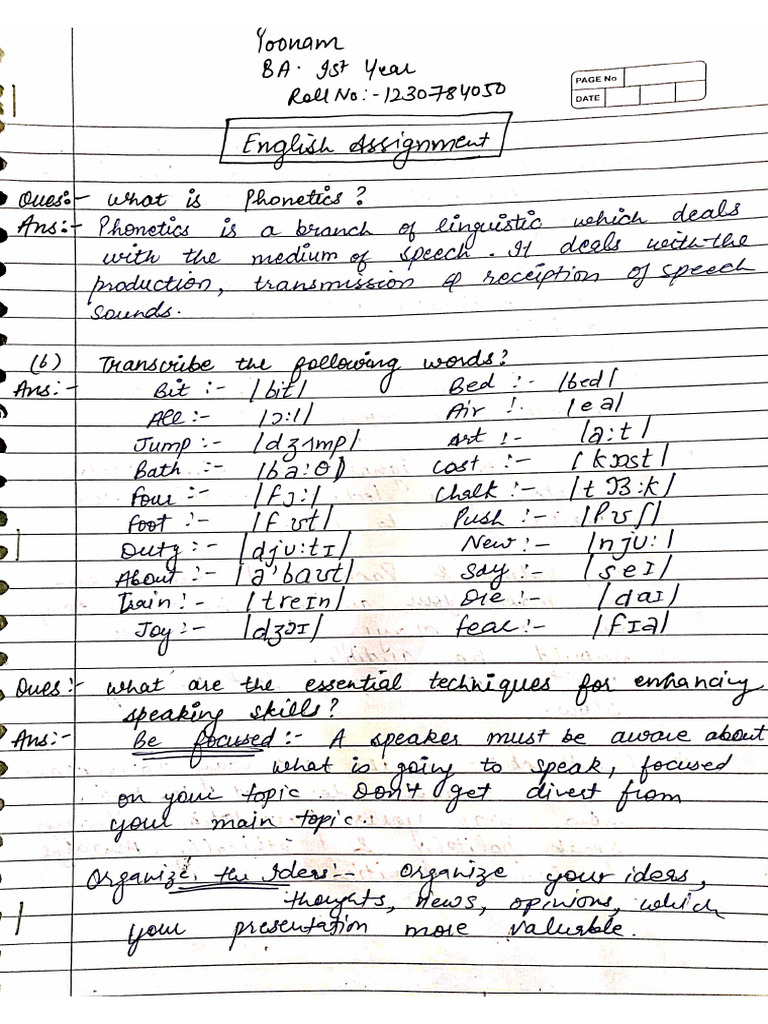 Yoonam
BA. Ist Year
Roll No:- 1230784050
PAGE No
DATE
English Assignment
Ques:- What is Phonetics?
Ans:- Phonetics is a branch of linguistic which deals
with the medium of speech. It deals with the
production, transmission & reception of speech
sounds.
(b) Transcribe the following words?
Ans:- Bit :- /bit/ Bed :- /bed/
All :- /ɔ:l/ Air !. /ea/
Jump :- /dʒʌmp/ Art !- /a:t/
Bath :- /ba:θ/ Cost :- /kɔst/
Four :- /fɔ:/ Chalk :- /tɔ:k/
Foot :- /fʊt/ Push :- /pʊʃ/
Duty :- /dju:tɪ/ New :- /nju:/
About :- /a'baʊt/ Say :- /seɪ/
Train :- /treɪn/ Die :- /daɪ/
Joy :- /dʒɔɪ/ Fear :- /fɪa/
Ques :- What are the essential techniques for enhancing
speaking skills?
Ans:- Be focused :- A speaker must be aware about
what is going to speak, focused
on your topic. Don't get divert from
your main topic.
Organize the Ideas:- Organize your ideas,
thougts, news, opinions, which
your presentation more valuable.